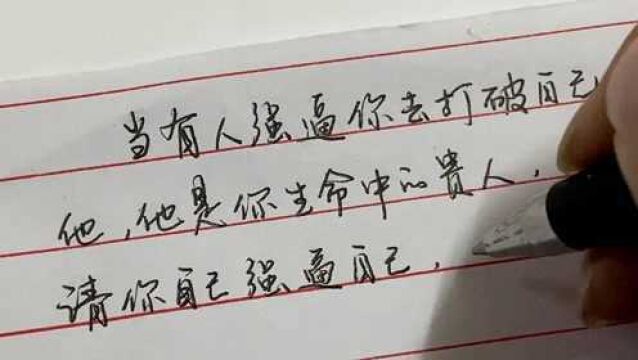 当有人强逼你去打破自己
他,他是你生命中的貴人,
请你自己强逼自己,